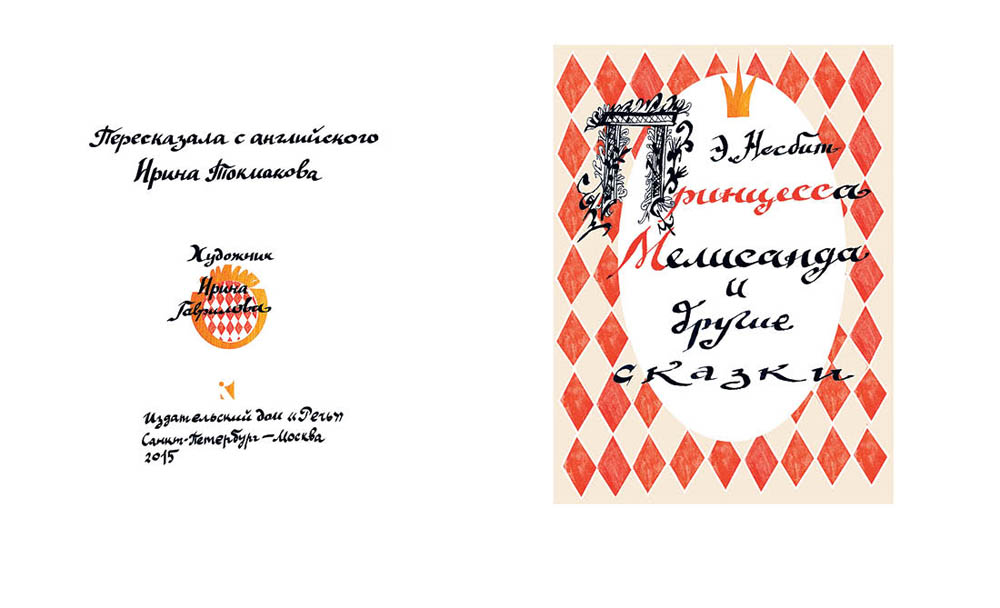 Пересказала с английского
Ирина Токмакова
Художник
Ирина
Гаврилова
Издательский дом «Речь»
Санкт-Петербург – Москва
2015
Э. Несбит
Принцесса
Мелисанда
и
другие
сказки